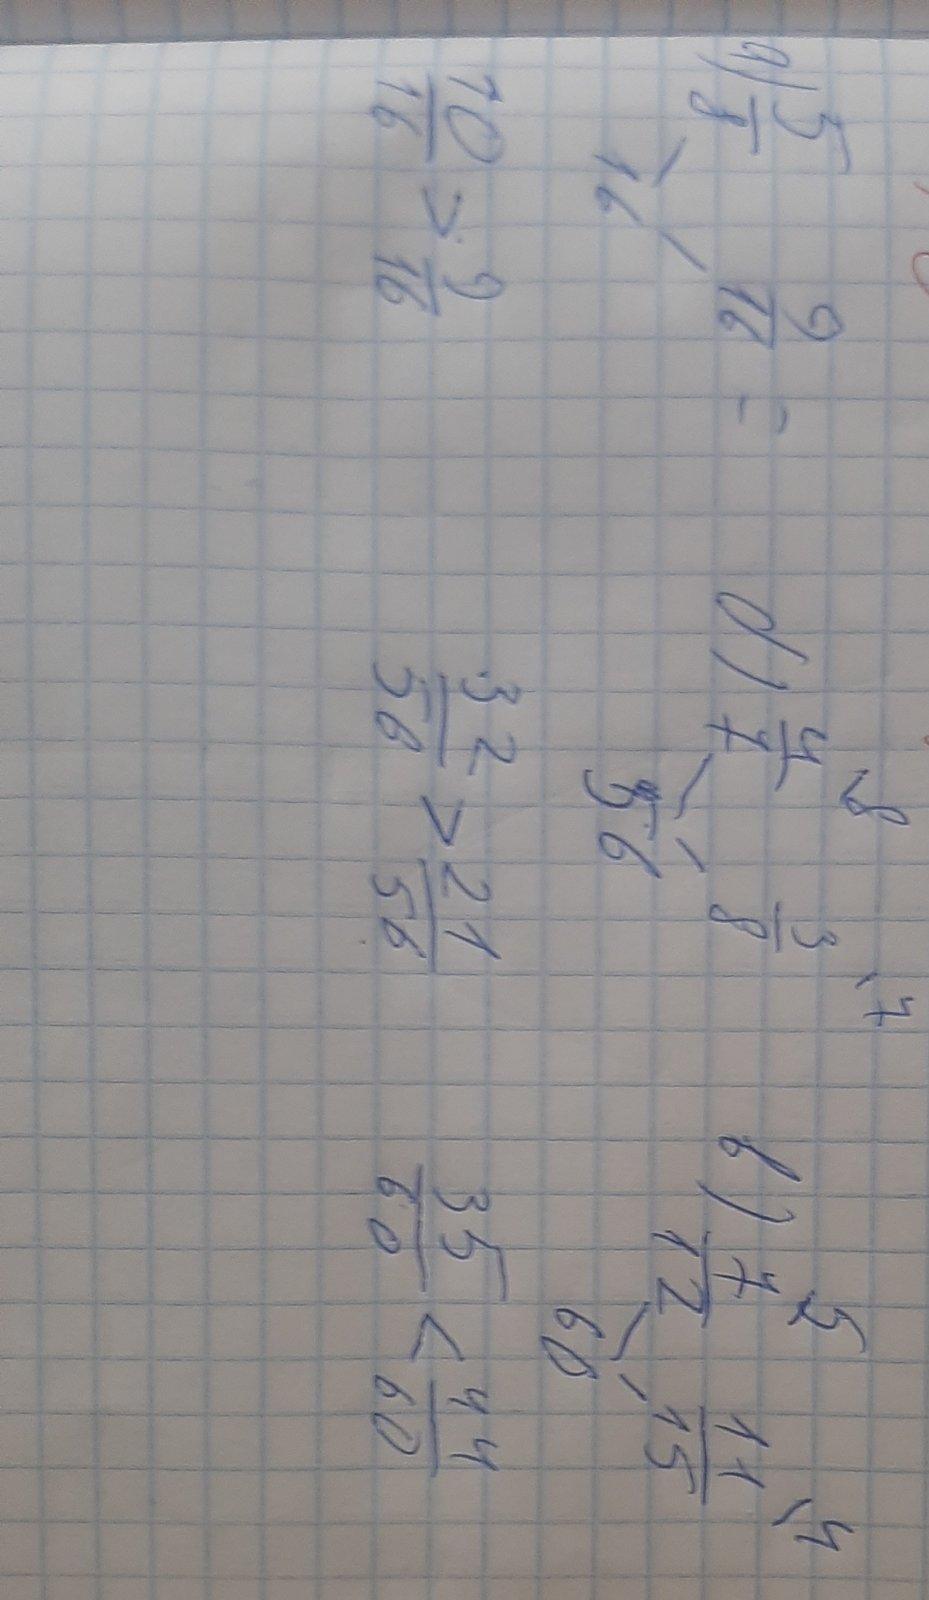 а) 5/8 9/16 =
16
10/16 > 9/16
б) 4/7 ·8 3/8 ·7
56
32/56 > 21/56
в) 7/12 5 11/15 ·4
60
35/60 < 44/60